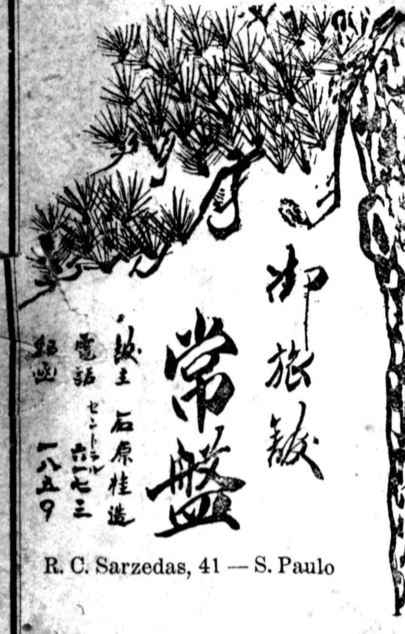 御旅館
常盤
館主 石原桂造
電話 セントラル 六一七三
郵函 一八五9
R. C. Sarzedas, 41 — S. Paulo